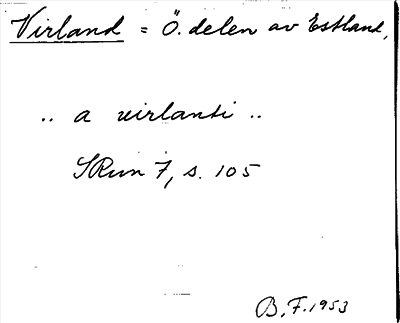 Virland = Ö. delen av Estland,
.. a uirlanti ..
SRun 7, s. 105
B.F. 1953